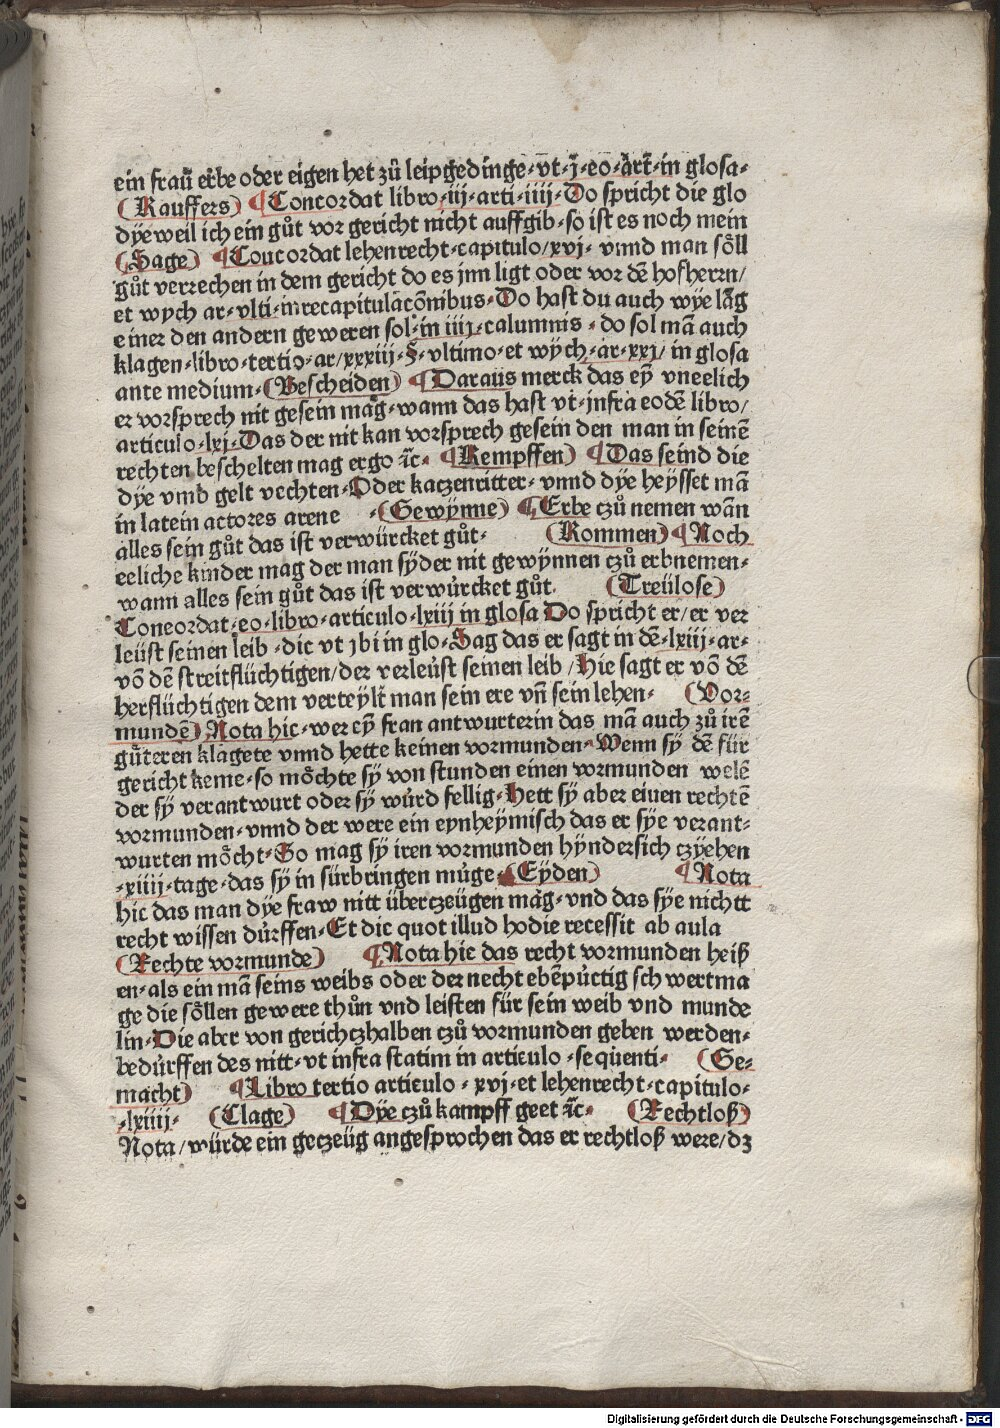 ein fraŭ erbe oder eigen het zů leipgedinge·vt·j̄·eo·ārt̄·in glosa·
(Kauffers) ¶Concordat libro·iij·arti·iiij·Do spricht die glo
dÿeweil ich ein gůt vor gericht nicht auffgib·so ist es noch mein
(Sage) ¶Concordat lehenrecht·capitulo/xvj· vnnd man sőll
gůt verrechen in dem gericht do es jnn ligt oder vor dē hofherrn/
et wych ar·vlti·in recapitulacōnibus·Do hast du auch wÿe lāg
einer den andern geweren sol·in iiij·calumnis·do sol mā auch
klagen·libro·tertio·ar/xxxiij·§·vltimo·et wÿch·ar·xxj/in glosa
ante medium·(Bescheiden) ¶Daraus merck das eÿ vneelich
er vorsprech nit gesein mag·wann das hast vt·jnfra eodē libro/
articulo·lxj·Das der nit kan vorsprech gesein den man in seinē
rechten beschelten mag ergo ⁊c· ¶(Kempffen) ¶Das seind die
dÿe vmb gelt vechten·Oder kaczenritter·vnnd dÿe heÿsset mā
in latein actores arene ·(Gewÿnne) ¶Erbe czů nemen wān
alles sein gůt das ist verwürcket gůt· (Kommen) ¶Noch
eeliche kinder mag der man sÿder nit gewÿnnen czů erbnemen·
wann alles sein gůt das ist verwürcket gůt. (Treülose)
Concordat·eo·libro·articulo·lxiij in glosa Do spricht er/er ver
leüst seinen leib·dic vt jbi in glo·Sag das er sagt in dē·lxiij·ar·
vō dē streitflüchtigen/der verleüst seinen leib/Hie sagt er vō dē
herflüchtigen dem verteÿlt man sein ere vn̄ sein lehen· (Vor⸗
mundē) Nota hic·wer eÿ fran antwurterin das mā auch zů irē
gůteren klagete vnnd hette keinen vormunden·Wenn sÿ dē für
gericht keme·so mőchte sÿ von stunden einen vormunden welē
der sÿ verantwurt oder sÿ würd fellig·Hett sÿ aber einen rechtē
vormunden·vnnd der were ein eynheÿmisch das er sÿe verant⸗
wurten mőcht·So mag sÿ iren vormunden hÿndersich czÿehen
·xiiij·tage·das sÿ in fürbringen müge·(Eÿden) ¶Nota
hic das man dÿe fraw nitt überczeügen mag·vnd das sÿe nichtt
recht wissen dürffen·Et dic quot illud hodie recessit ab aula
(Rechte vormunde) ¶Nota hic das recht vormunden heiß
en·als ein mā seins weibs oder der necht ebēpürtig schwertma
ge die sőllen gewere thůn vnd leisten für sein weib vnd munde
lin·Die aber von gerichczhalben czů vormunden geben werden·
bedürffen des nitt·vt infra statim in articulo·sequenti· (Ge⸗
macht) ¶Libro tertio articulo·xvj·et lehenrecht·capitulo·
·lxiiij· (Clage) ¶Dÿe czů kampff geet ⁊c· (Rechtloß)
Nota/würde ein geczeüg angesprochen das er rechtloß were/dz
Digitalisierung gefördert durch die Deutsche Forschungsgemeinschaft - DFG